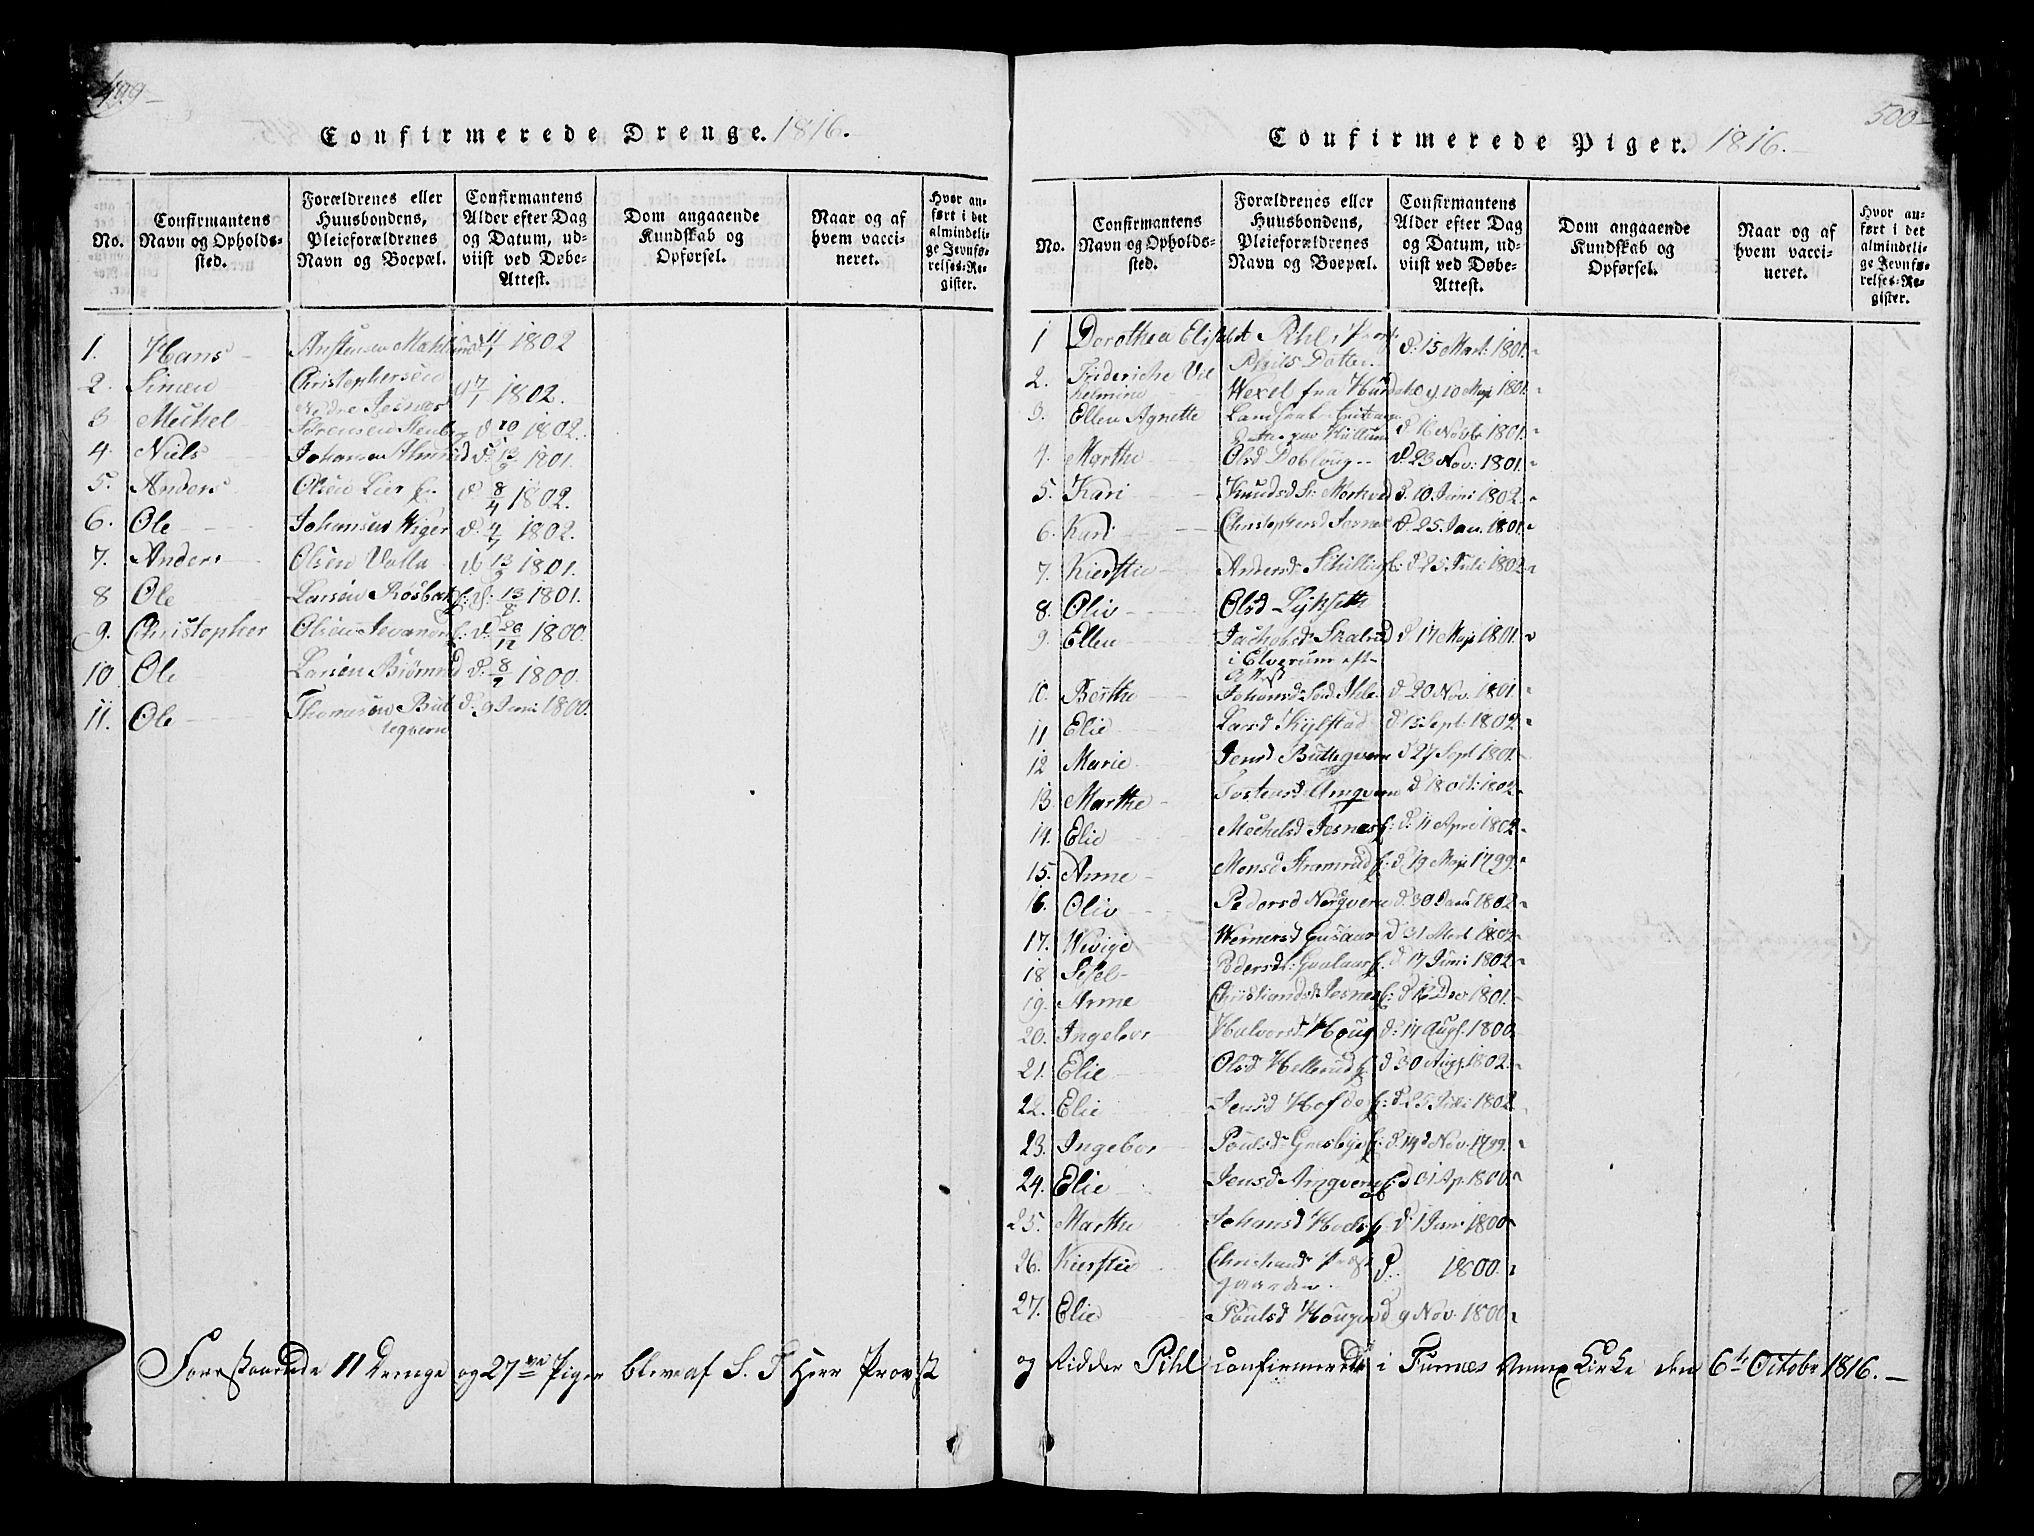 499
Confirmerede Drenge. 1816.
No.
Confirmantens Navn og Opholds-sted.
Forældrenes eller Huusbondens, Pleieforældrenes Navn og Boepæl.
Confirmantens Alder efter Dag og Datum, ud-viist ved Døbe-Attest.
Dom angaaende Kundskab og Opførsel.
Naar og af hvem vacci-neret.
Hvor an-ført i det almindeli-ge Jevnfø-relses-Re-gister.
1. Hans 1802
2. Simen Christophersen 7/1 1802.
Nedre Jesnes
3 Mechel Sørensen d 10 1802.
4. Niels Johansen d: 13/9 1801.
5. Anders Olsen Lier d 8/4 1802.
6. Ole Johansen Wiger d. 4/7 1802.
7. Anders Olsen Valla d. 13/9 1801.
8 Ole Larsen Rosbak d: 13/8 1801.
9. Christopher Olsen d. 26/12 1800.
10 Ole Larsen d. 8/9 1800.
11. Ole Thomasen But d. 9 Juni 1800.
teqvern
Forestaaende 11 Drenge og 27 Piger bleve af S. T Herr Provst
500
Confirmerede Piger. 1816.
No.
Confirmantens Navn og Opholds-sted.
Forældrenes eller Huusbondens, Pleieforældrenes Navn og Boepæl.
Confirmantens Alder efter Dag og Datum, ud-viist ved Døbe-Attest.
Dom angaaende Kundskab og Opførsel.
Naar og af hvem vacci-neret.
Hvor an-ført i det almindeli-ge Jevnfø-relses-Re-gister.
1 Dorothea Elisabet Pihl, d. 15 Mart: 1801.
Pihls Datter
2. Frideriche Vil
helmine Wexel fra Hurdahl d. 10 Maji 1801.
3. Ellen Agnette d 16 Novbr 1801.
4. Marthe Olsd Dobloug d. 23 Nov: 1801.
5. Kari Knudsd d. 10. Juni 1802.
6. Kari Christophersd Jesnes d. 25. Jan. 1801.
7. Kierstie Andersd d 25. Juli 1802
8. Oliv Olsd Lyhseth
9. Ellen Jachobsd d. 17 Maji 1801.
i Elverum eft
Attest
10. Berthe Johansd d. 20 Nov. 1801.
11 Elie Larsd Kylstad d 13 Sept: 1802.
12 Marie Jensd Butteqvern d 27 Sept 1801.
13. Marthe Tostensd Arnqvern d 18 Oct: 1802
14. Elie Mechelsd Jesnes d: 11 April 1802
15. Anne Monsd d 19 Maji 1799.
16. Oliv Pedersd d: 30 1802
17. Wivige Wernersd d 31 Mart 1802
18 Sisel Pedersd: d. 17 Juni 1802
19. Anne Christiansd: Jesnes d 12 Dec: 1801.
20. Ingebor Halvorsd Houg d: 14 Augs. 1800
21. Elie Olsd Hellerud d 30 Augs. 1802.
22. Elie Jensd Hofde d. 25 1802
23. Ingebor Poulsd d. 14d Nov. 1799.
24. Elie Jensd Arnqvern d 01 Ap. 1800.
25. Marthe Johansd d. 1 1800
26. Kierstie d. 1800.
gaarden
27. Elie Poulsd Hougen d 9 Nov. 1800
og Ridder Pihl confirmerede i Furnæs Annex Kirke den 6te Octobr 1816.